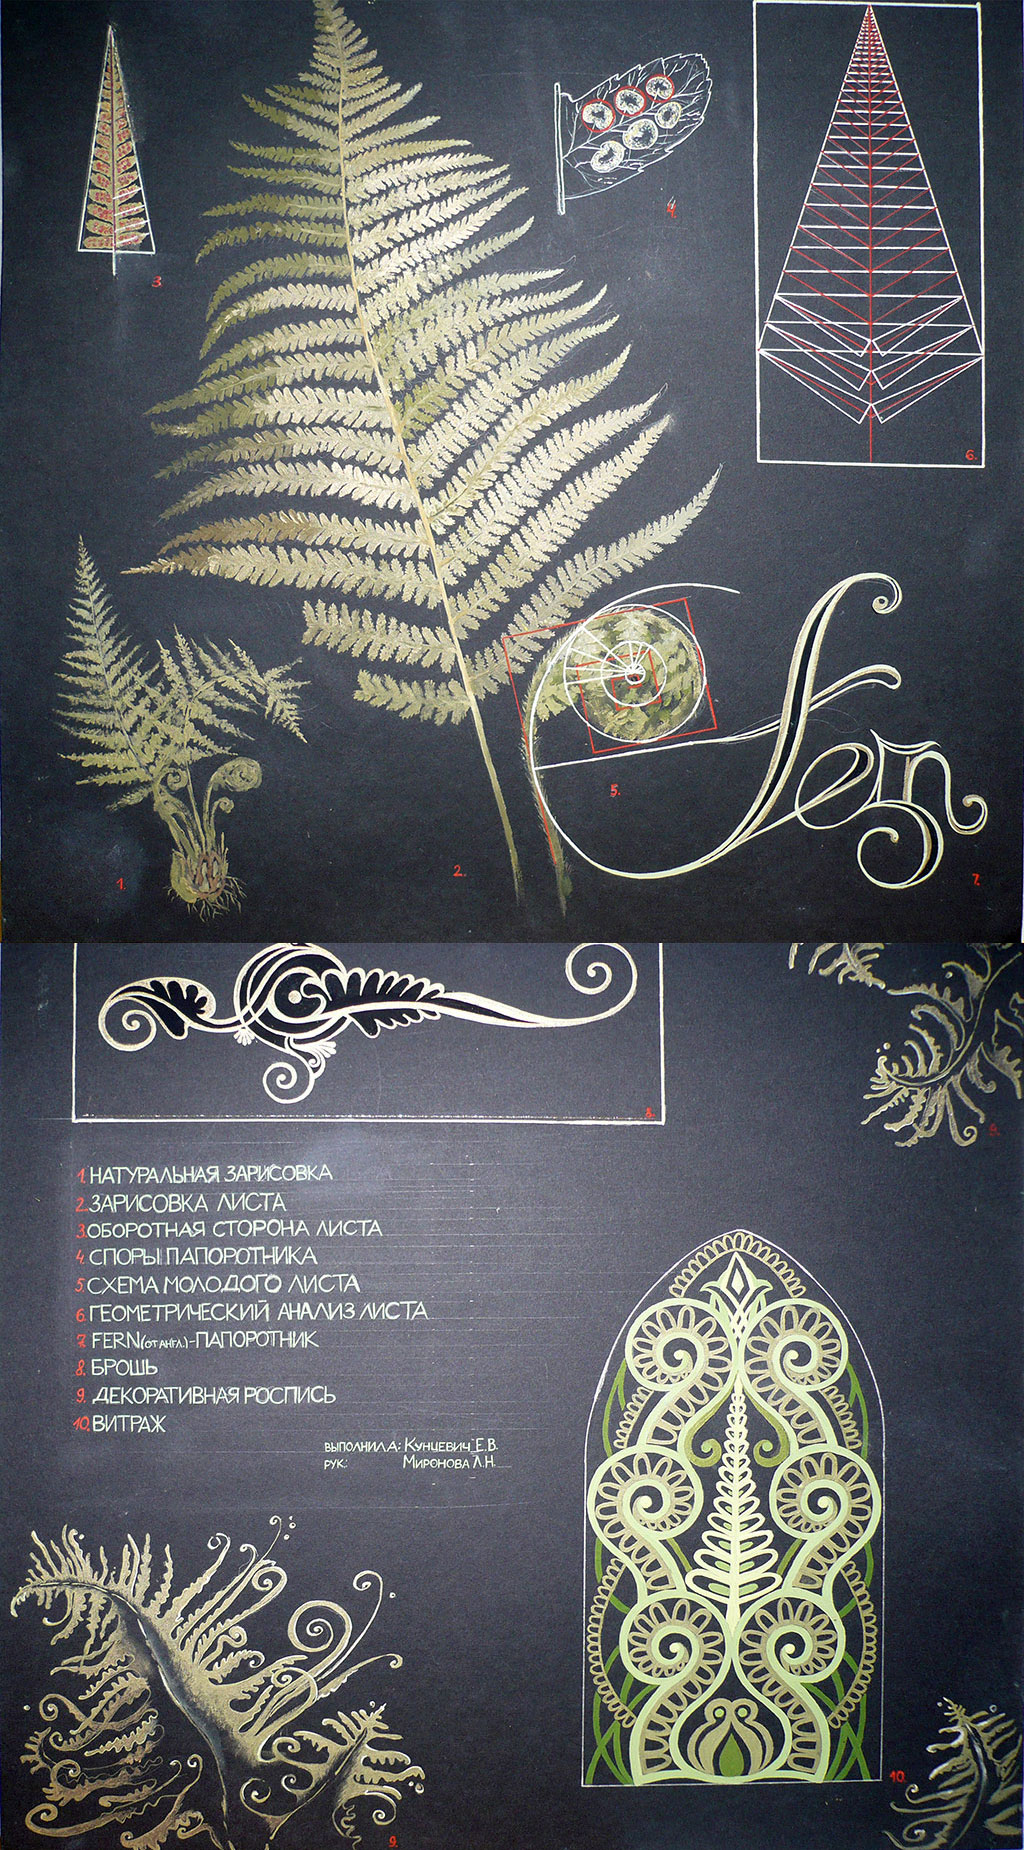 3.
4.
6.
5.
Fern
1.
2.
7.
8.
9.
1. НАТУРАЛЬНАЯ ЗАРИСОВКА
2. ЗАРИСОВКА ЛИСТА
3. ОБОРОТНАЯ СТОРОНА ЛИСТА
4. СПОРЫ ПАПОРОТНИКА
5. СХЕМА МОЛОДОГО ЛИСТА
6. ГЕОМЕТРИЧЕСКИЙ АНАЛИЗ ЛИСТА
7. FERN (ОТ АНГЛ.)-ПАПОРОТНИК
8. БРОШЬ
9. ДЕКОРАТИВНАЯ РОСПИСЬ
10. ВИТРАЖ
ВЫПОЛНИЛА: КУНЦЕВИЧ Е.В.
РУК.: МИРОНОВА Л.Н.
10.
9.